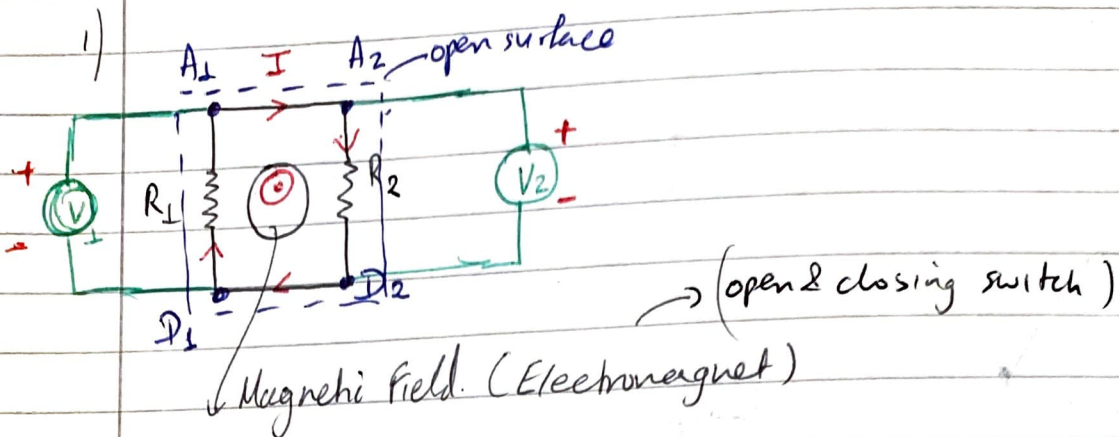 1)
A1 I A2 open surface
+ +
V1 R1 R2 V2
- -
D1 D2
(open & closing switch)
Magneti Field. (Electromagnet)